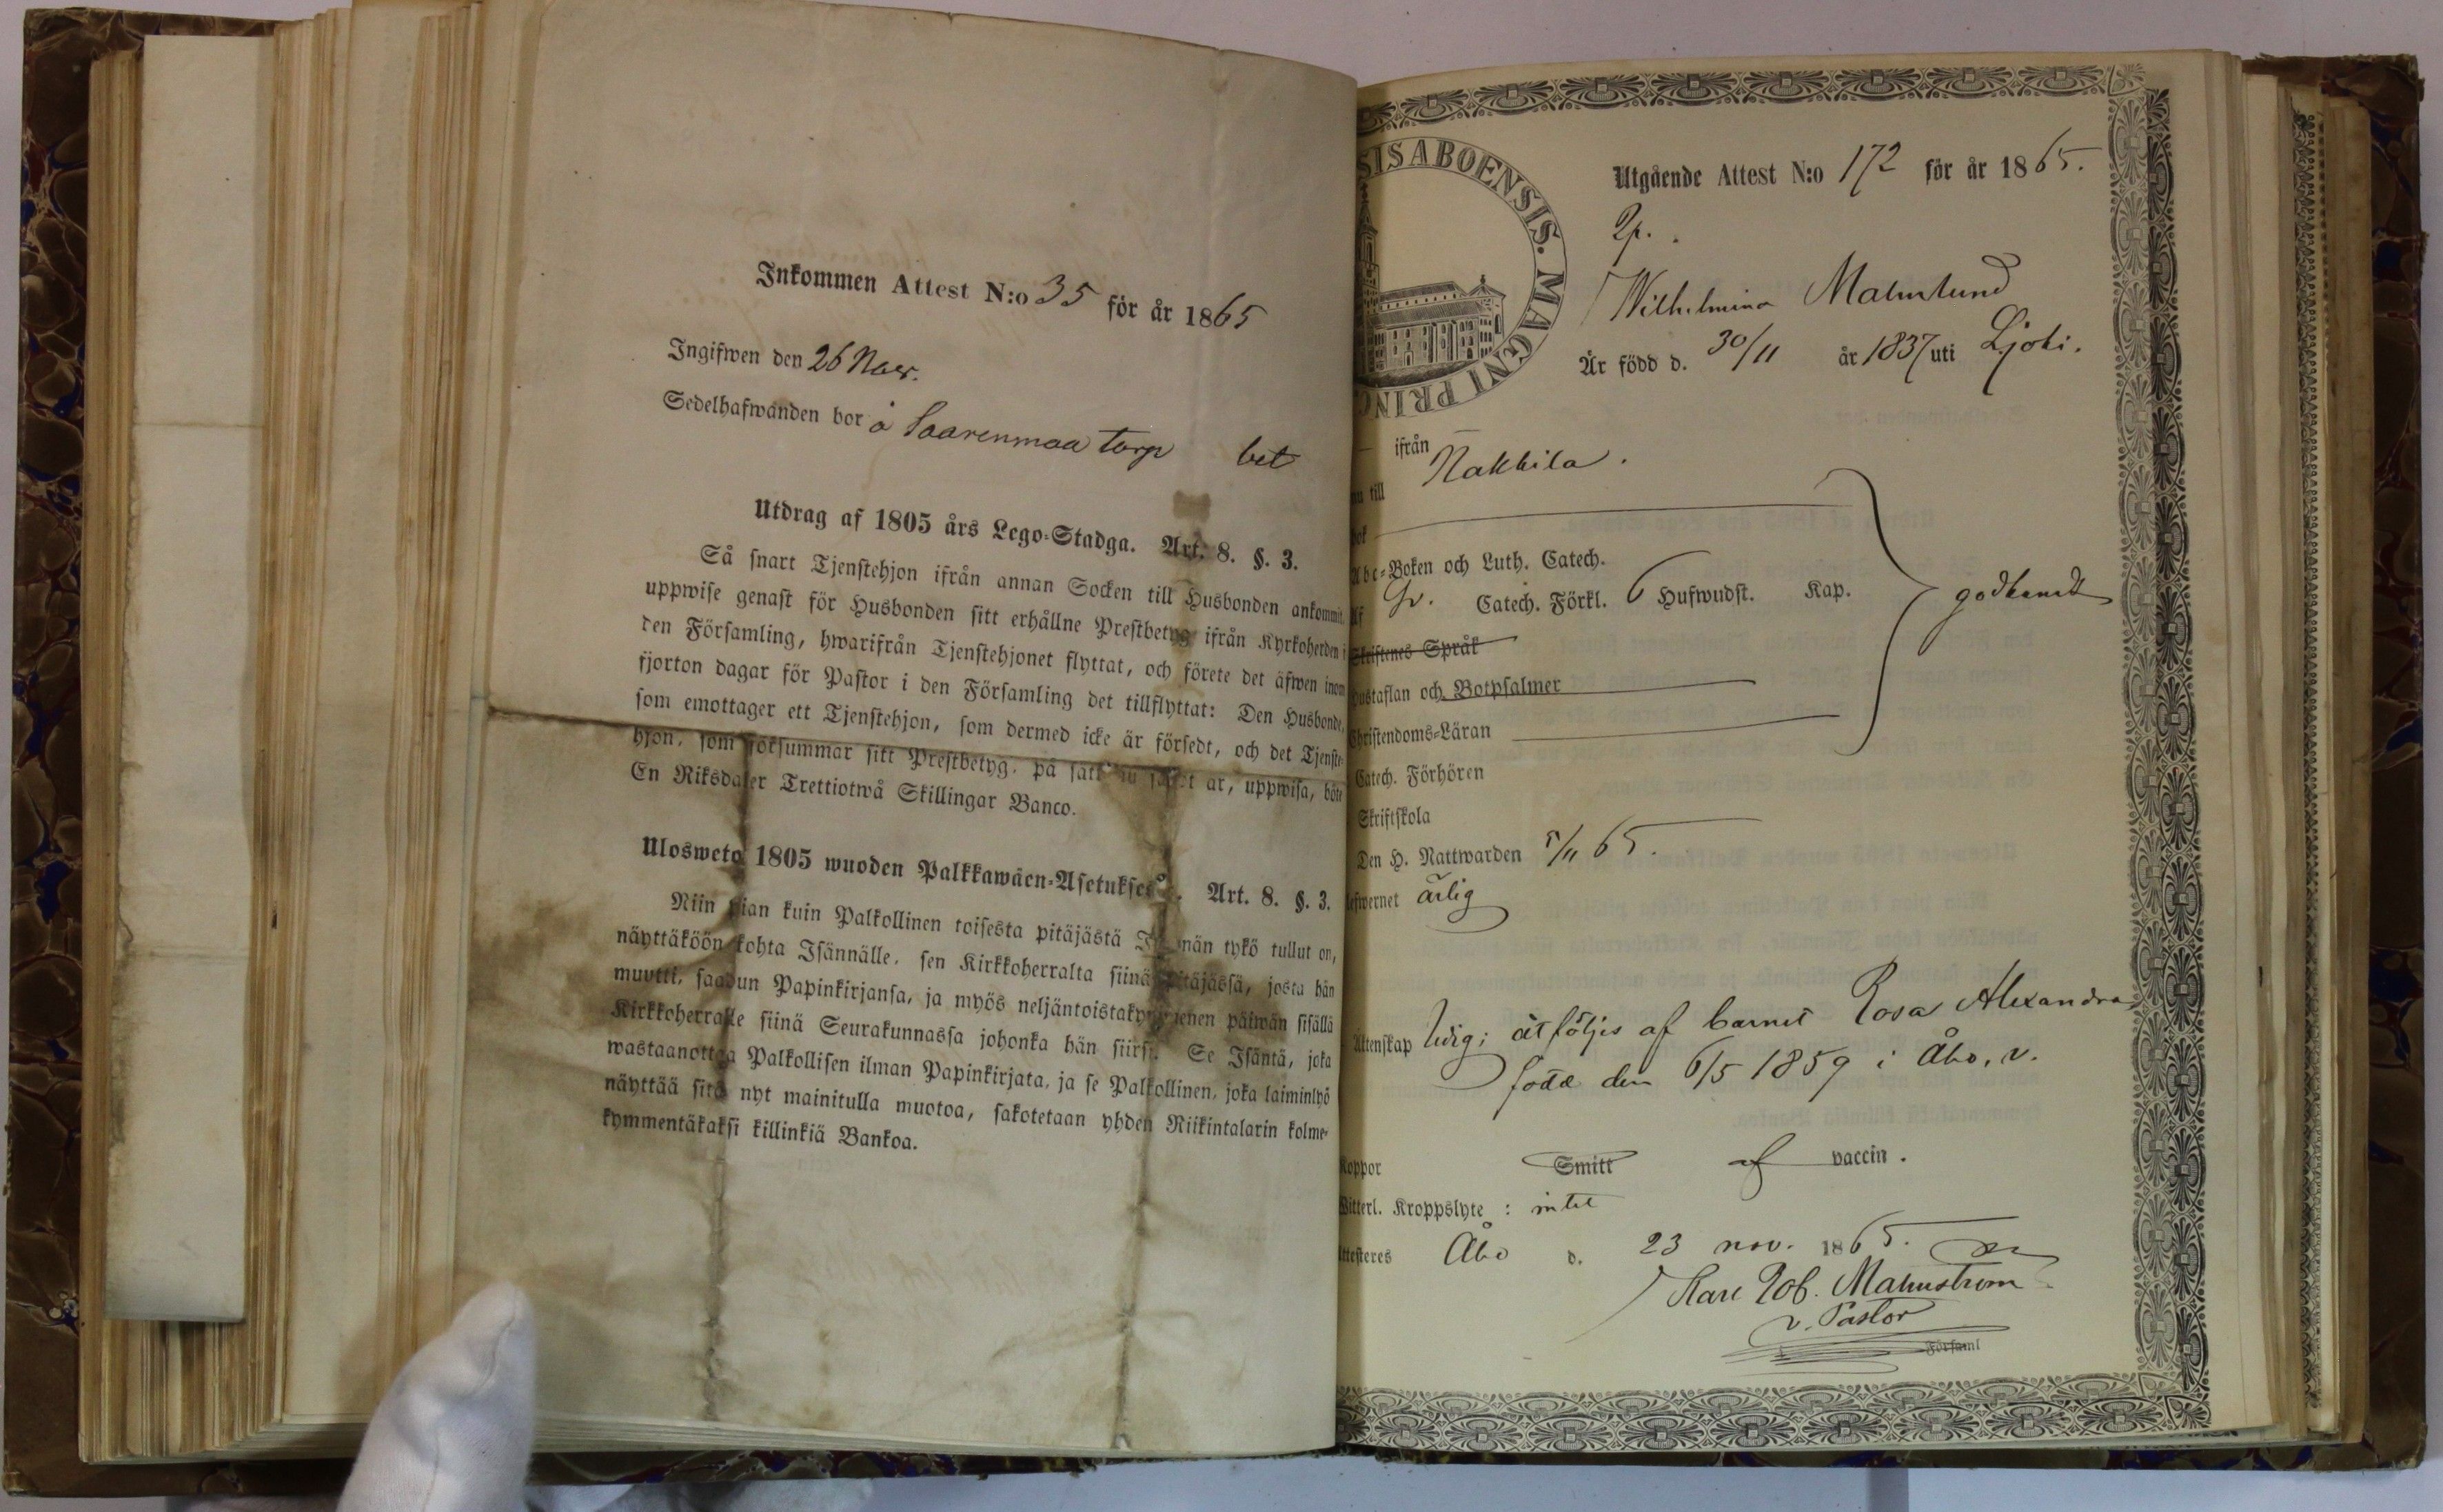 Inkommen Attest N:o 35 för år 1865
Ingifwen den 26 Nov.
Sedelhafwanden bor å Saarenmaa torp bet
Utdrag af 1805 års Lego-Stadga. Art. 8. §. 3.
Så snart Tjenstehjon ifrån annan Socken till Husbonden ankommit,
uppwise genast för Husbonden sitt erhållne Prestbetyg ifrån Kyrkoherden i
den Församling, hwarifrån Tjenstehjonet flyttat, och förete det äfwen inom
fjorton dagar för Pastor i den Församling det tillflyttat: Den Husbonde,
som emottager ett Tjenstehjon, som dermed icke är försedt, och det Tjenste-
hjon, som försummar sitt Prestbetyg, på sätt nu sagdt är, uppwisa, böte
En Riksdaler Trettiotwå Skillingar Banco.
Ulosweto 1805 wuoden Palkkawäen-Asetuksesta. Art. 8. §. 3.
Niin pian kuin Palkollinen toisesta pitäjästä Isännän tykö tullut on,
näyttäköön kohta Isännälle, sen Kirkkoherralta siinä pitäjässä, josta hän
muutti, saadun Papinkirjansa, ja myös neljäntoistakymmenen päiwän sisällä
Kirkkoherralle siinä Seurakunnassa johonka hän siirsi. Se Isäntä, joka
wastaanottaa Palkollisen ilman Papinkirjata, ja se Palkollinen, joka laiminlyö
näyttää sitä nyt mainitulla muotoa, sakotetaan yhden Riikintalarin kolme-
kymmentäkaksi killinkiä Bankoa.
SISABOENSIS. MAGNI PRINC
Utgående Attest N:o 172 för år 1865.
Wilhelmina Malmlund
Är född d. 30/11 år 1837 uti
ifrån
till Nakkila.
Abc-Boken och Luth. Catech.
Catech. Förkl. 6 Hufwudst. Kap. godkändt
Skriftenes Språk
Hustaflan och Botpsalmer
Christendoms-Läran
Catech. Förhören
Skriftskola
Den H. Nattwarden 5/11 65.
Lefwernet ärlig
Äktenskap ledig; åtföljes af barnet Rosa Alexandra
född den 6/5 1859 i Åbo, v.
Koppor Smitt af vaccin.
Witterl. Kroppslyte : intet
Attesteres Åbo d. 23 nov. 1865.
Karl Rob. Malmström
v. Pastor
Församl